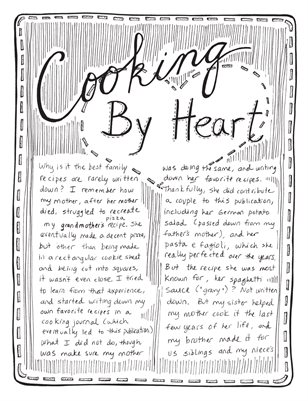 Cooking
By Heart
Why is it the best family
recipes are rarely written
down? I remember how
my mother, after her mother
died, struggled to recreate
pizza
my grandmother's recipe. She
eventually made a decent pizza,
but other than being made
in a rectangular cookie sheet
and being cut into squares,
it wasn't even close. I tried
to learn from that experience,
and started writing down my
own favorite recipes in a
cooking journal (which
eventually led to this publication).
What I did not do, though
was make sure my mother
was doing the same, and writing
down her favorite recipes.
Thankfully, she did contribute
a couple to this publication,
including her German potato
salad (passed down from my
father's mother), and her
pasta e fagioli, which she
really perfected over the years.
But the recipe she was most
known for, her spaghetti
sauce ("gravy")? Not written
down. But my sister helped
my mother cook it the last
few years of her life, and
my brother made it for
us siblings and my niece's